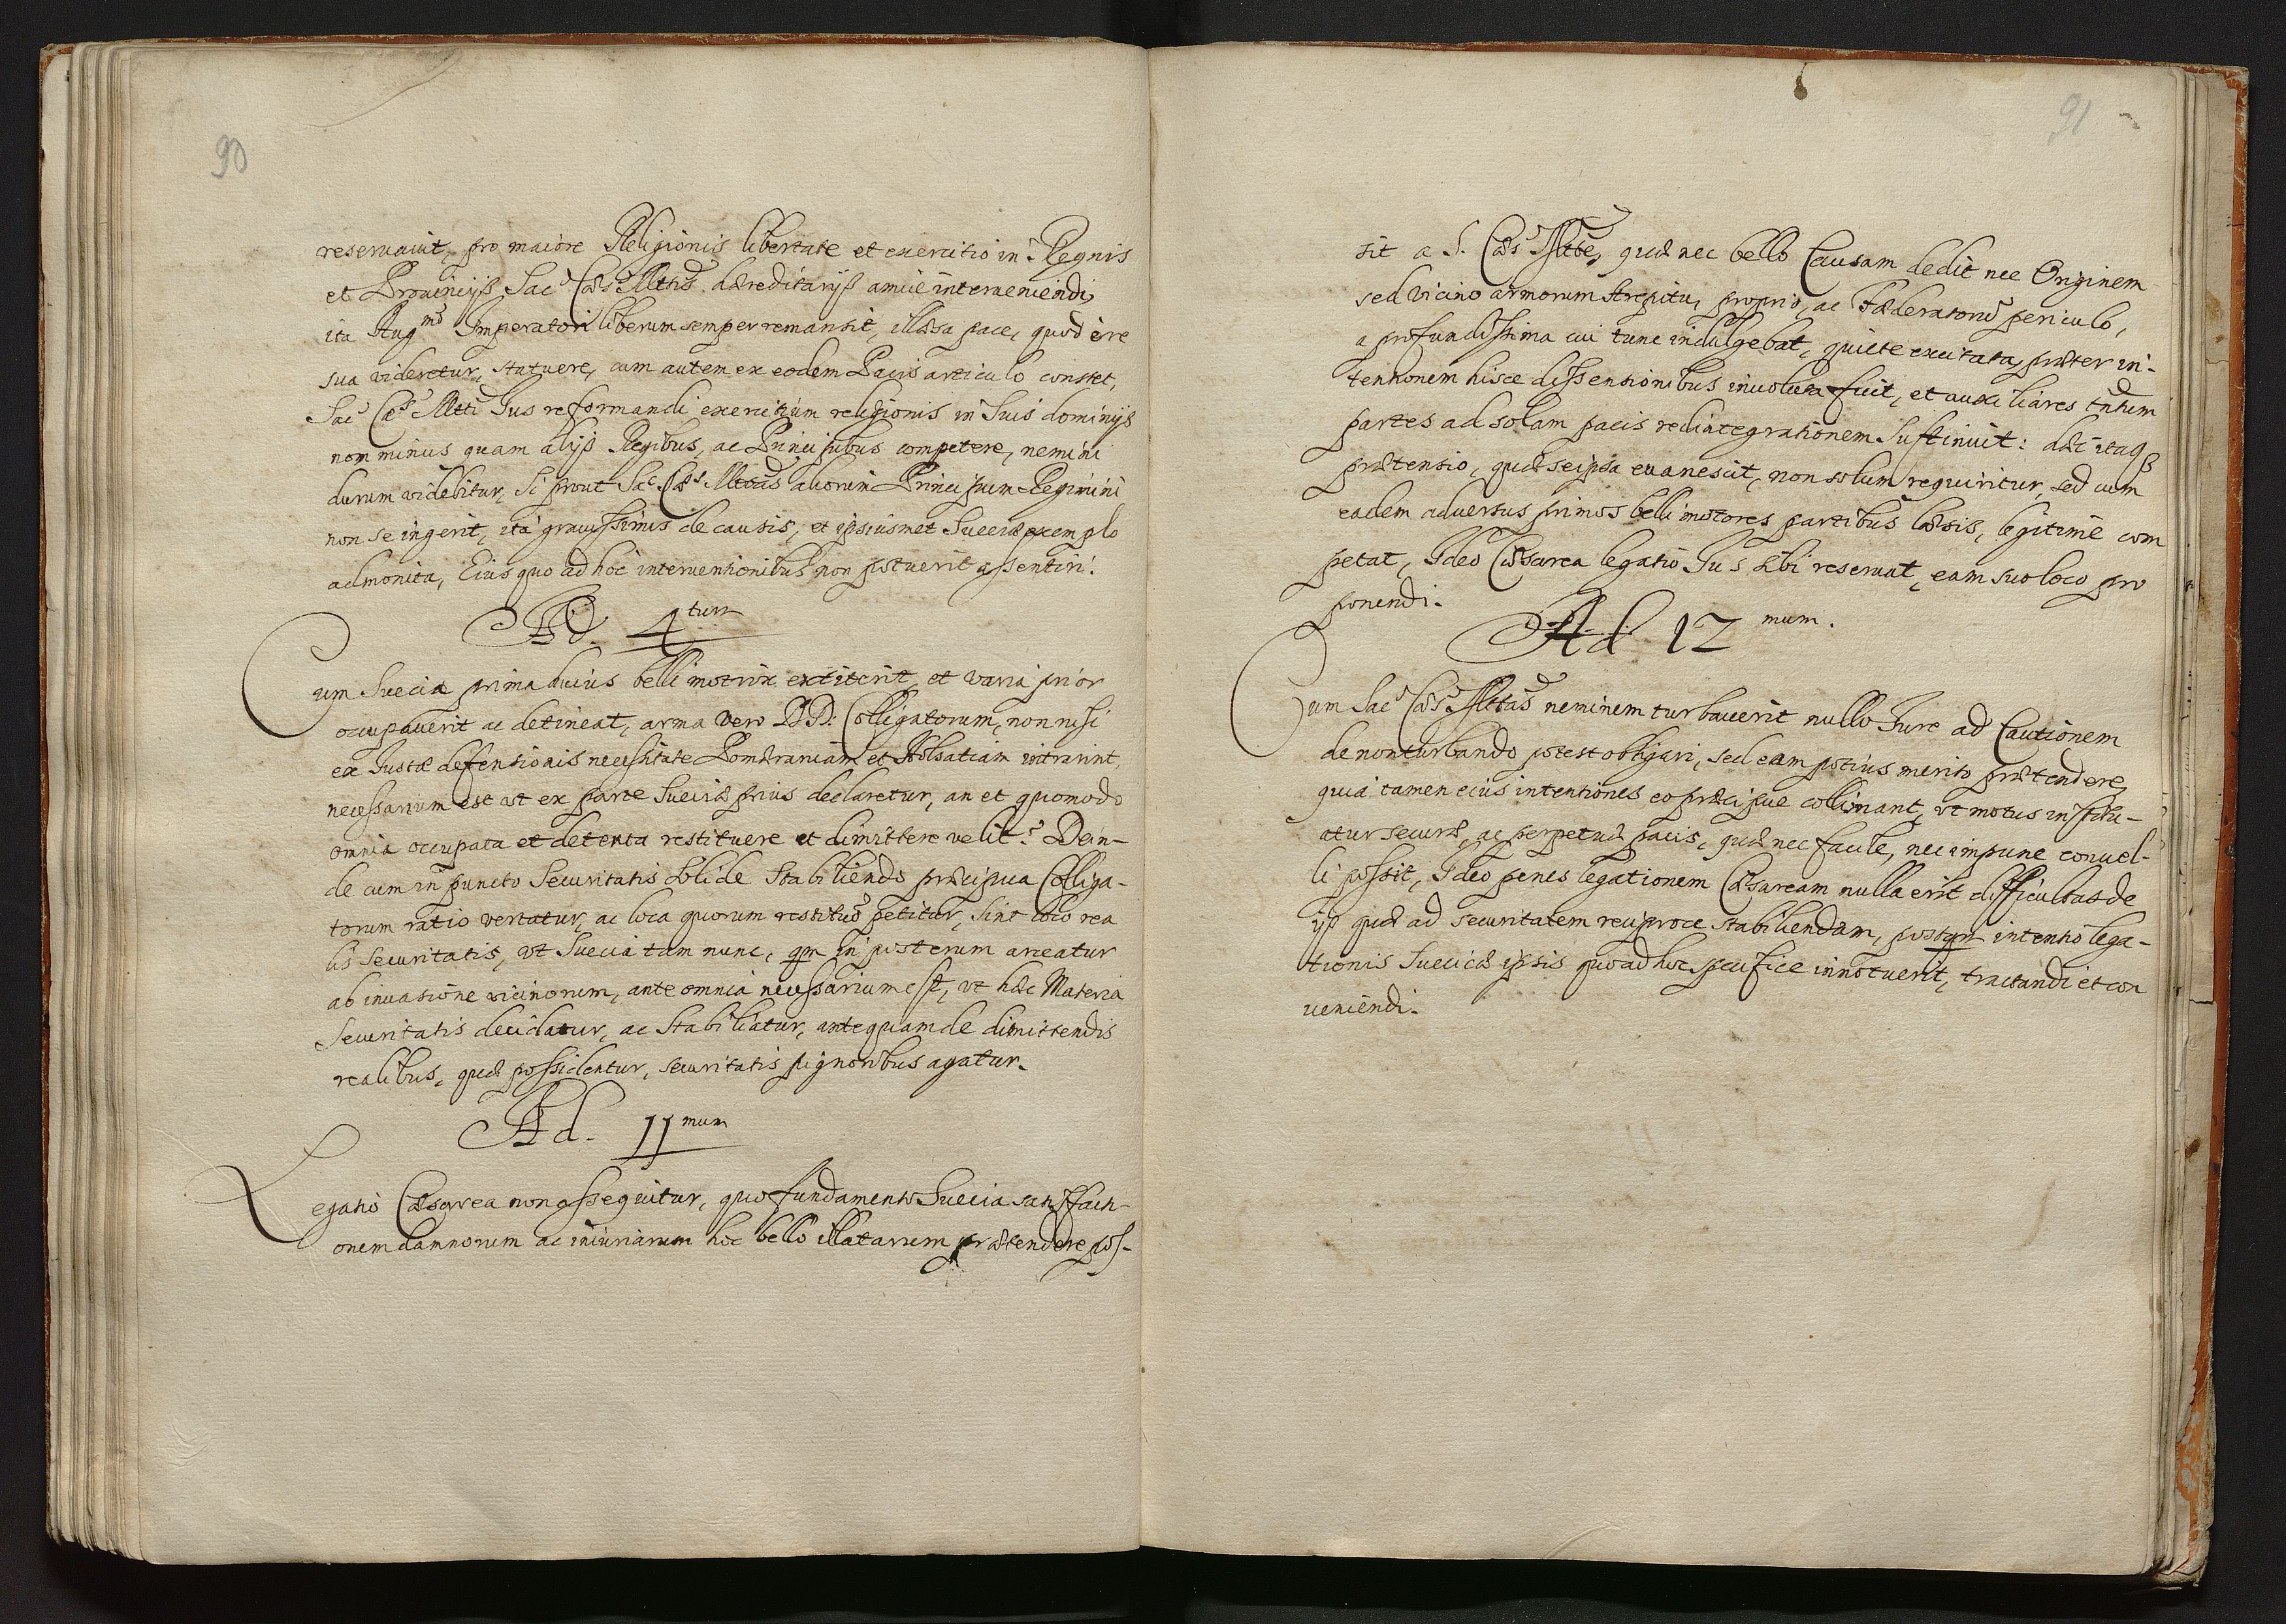 90
reseruauit, pro maiore Religionis libertate et exercitio in Regnis
et Provincijs Sac: Cæs: Mttis hæreditarijs amice interueniendi,
ita Augmo Imperatori liberum semper remansit, illæsa pace, quod ê re
sua videretur, statuere, cum autem ex eodem Pacis articulo constet,
Sac: Cæs: Mtti Jus reformandi exercitium religionis in suis dominijs
non minus quam alijs Regibus, ac Principibus competere, nemini
durum videbitur, si prout Sac: Cæs: Mttas aliorum Principum Regimini
non se ingerit, ita grauissimis de causis, et ipsiusmet Sueciæ exemplo
admonita, Eius quo ad hoc interuentionibus non potuerit assentiri.
Ad. 4tum
Cum Suecia prima huius belli motrix extiterit, et varia prior
occupaverit ac detineat, arma vero DD: Colligatorum, non nisi
ex Justæ defensionis necessitate Pomeraniam et Holsatiam intrarint,
necessarium est vt ex parte Sueciæ prius declaretur, an et quomodo
omnia occupata et detenta restituere et dimittere velit? Dein-
de cum in puncto Securitatis solide Stabiliendo præcipua Colliga-
torum ratio vertatur, ac loca quorum restitutio petitur, sint loco rea
lis Securitatis, vt Suecia tam nunc, qm in posterum arceatur
ab inuasione vicinorum, ante omnia necessarium est, vt hæc Materia
Securitatis decidatur, ac Stabiliatur, antequam de dimittendis
realibus, quæ possidentur, securitatis pignoribus agatur.
Ad. 11mum
Legatio Cæsarea non assequitur, quo fundamento Suecia satisfacti-
onem damnorum ac iniuriarum hoc bello illatarum prætendere pos-
91
sit a S. Cæs: Mtte, quæ nec bello Causam dedit nec Originem
sed vicino armorum strepitu, proprio, ac Fæderatorum periculo,
a profundissima cui tunc indulgebat, quiete excitata, præter in-
tentionem hisce dissentionibus inuoluta fuit, et auxiliares tntum
partes ad solam pacis redintegrationem Sustinuit: hæc itaqß
prætensio, quæ seipsa euanescit, non solum requiritur, sed cum
eadem adversus primos belli motores partibus læsis, legitimê com
petat, Ideo Cæsarea legatio Jus sibi reseruat, eam suo loco pro
ponendi.
Ad 12 mum.
Cum Sac: Cæs: Mttas neminem turbauerit nullo Jure ad Cautionem
de non turbando potest obligari, sed eam potius merito prætendere,
quia tamen eius intentiones eo præcipue collimant, vt motus institu-
atur securæ, ac perpetuæ pacis, quæ nec facile, nec impune conuel-
li possit, Ideo penes legationem Cæsaream nulla erit difficultas de
ijs quæ ad securitatem reciproce stabiliendam, postqm intentio lega-
tionis Suecicæ ipsis quo ad hoc specifice innotuerit, tractandi et con
ueniendi.